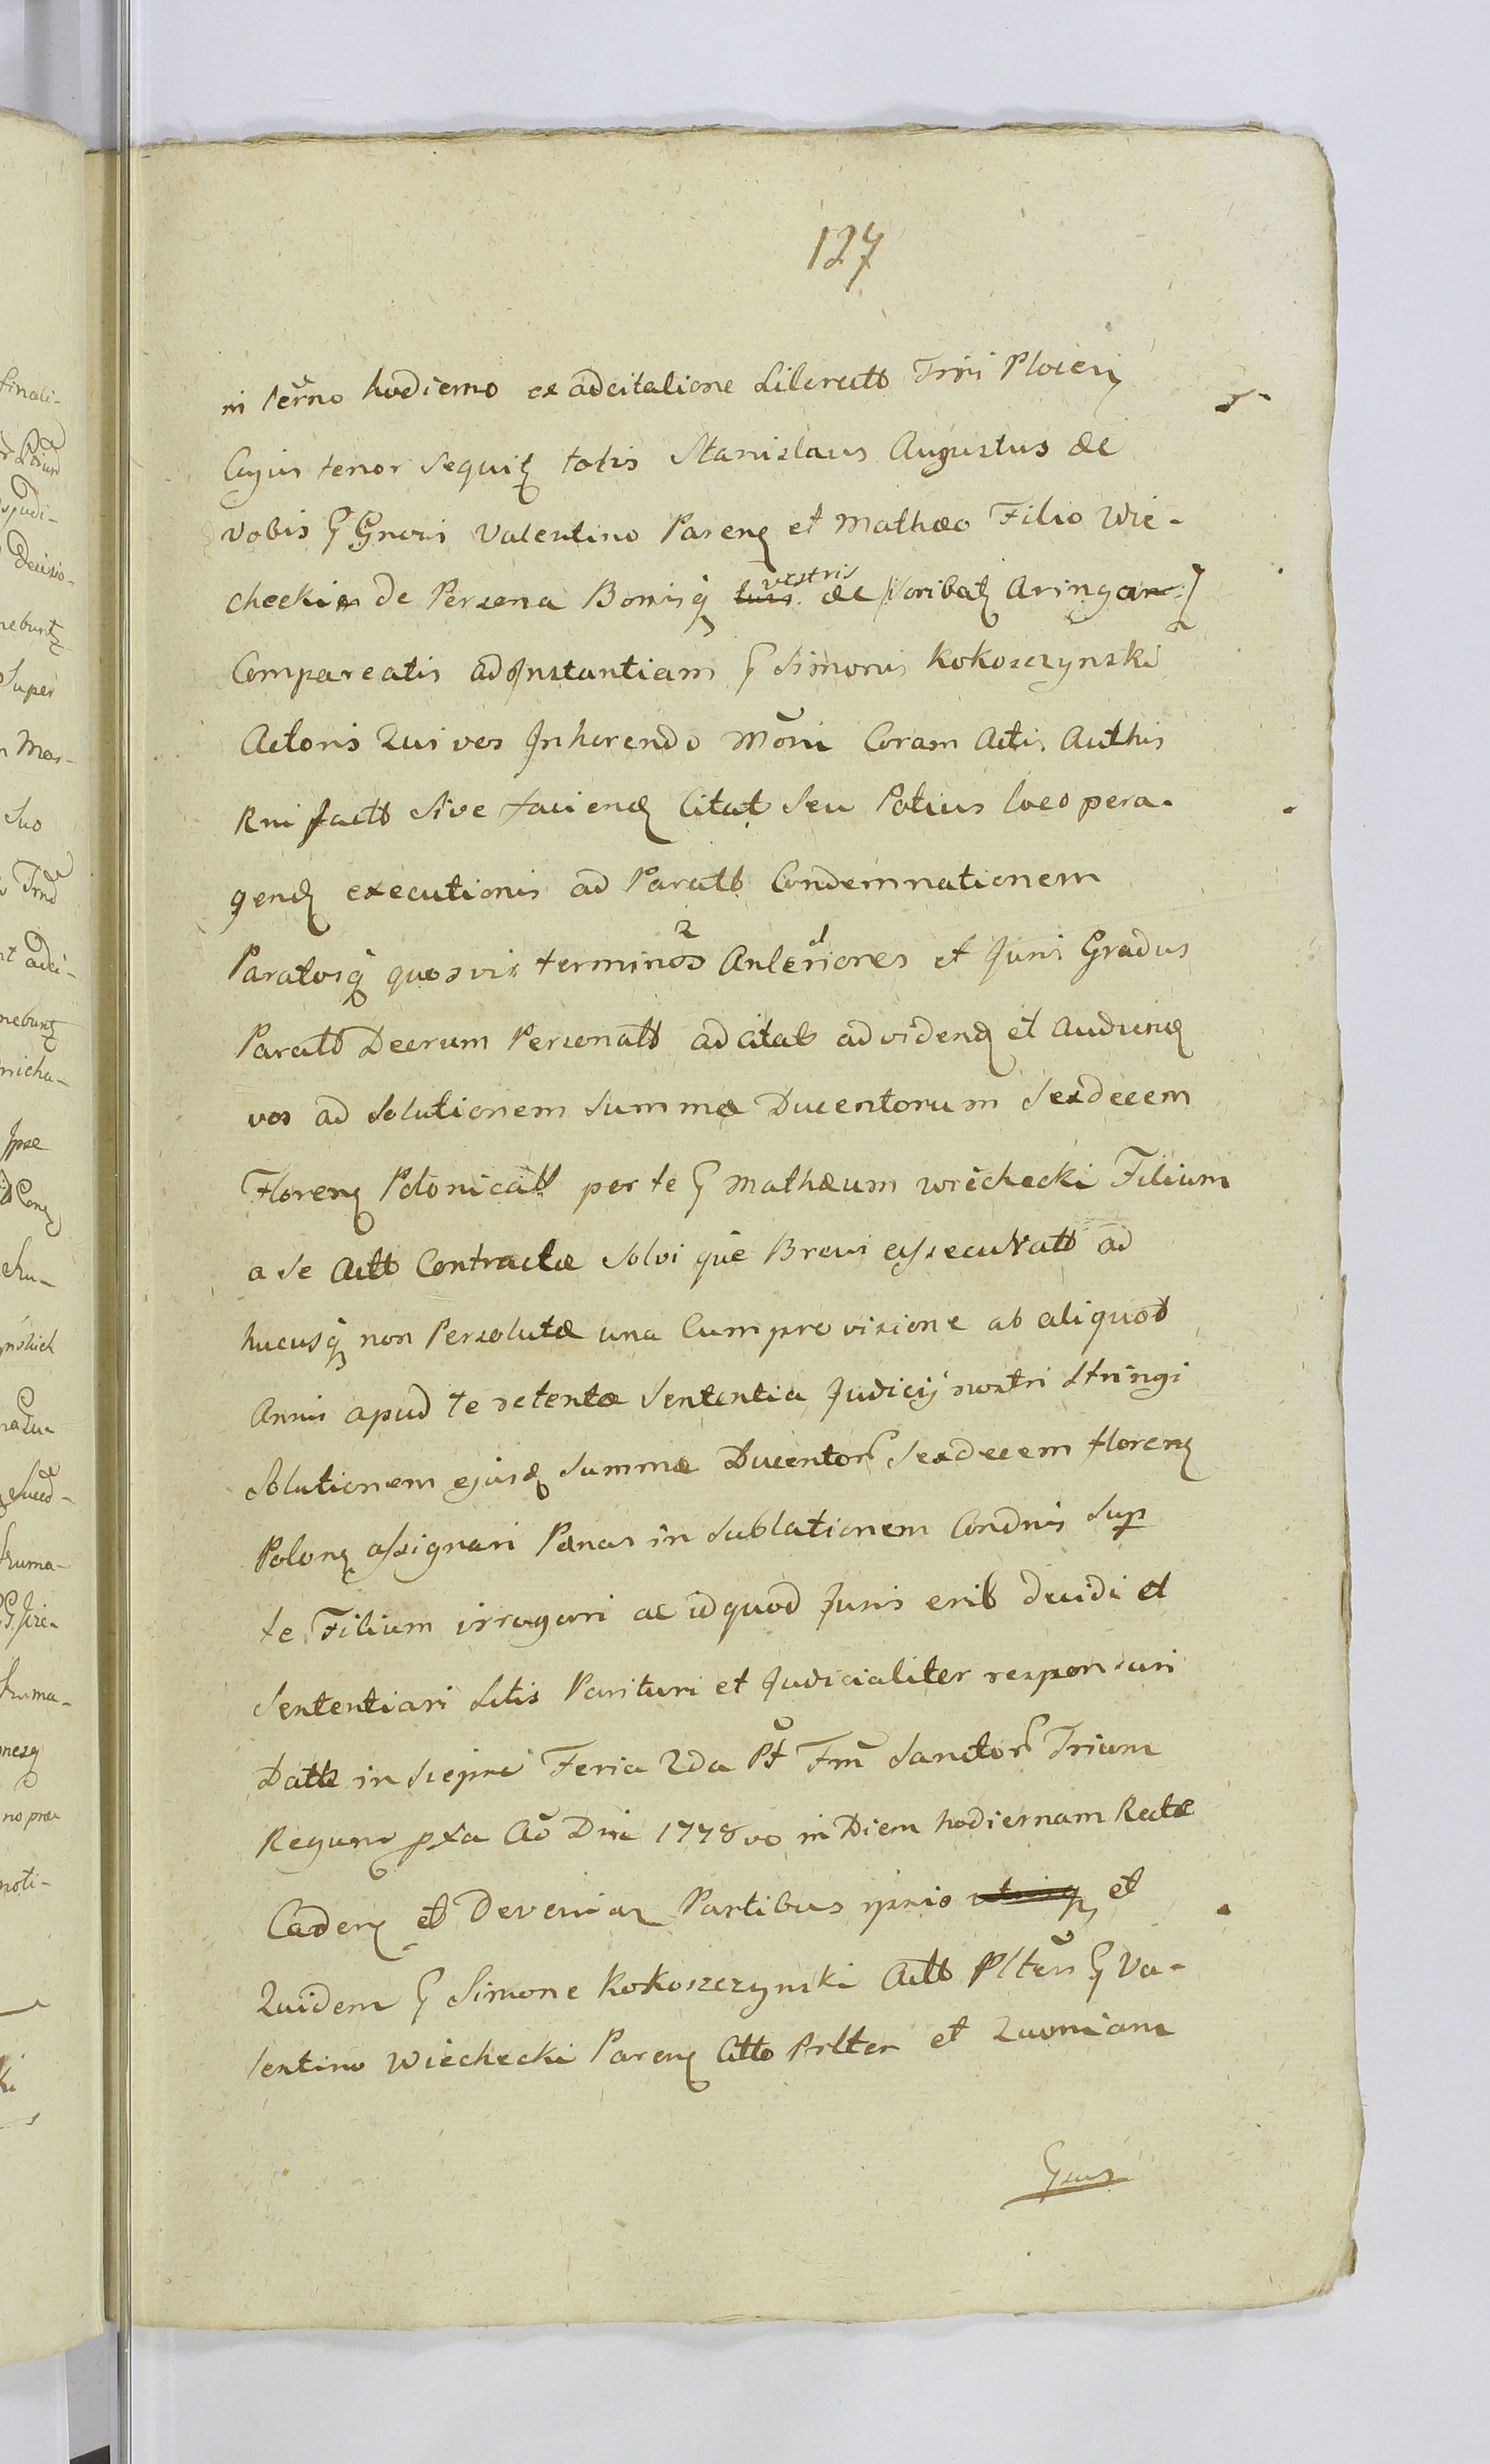 127
in terno hodierno ex adcitatione Literatt Trini Ploceń
Cujus tenor sequitq totis Stanislaus Augustus &c
Vobis G Gnosi Valentino Parenq et Mathæo Filio Wie-
checkim de Persona Bonisq vestris &c
Compareatis ad Instantiam G Simonis Kokoszczynski
Actoris Qui vos Inherendo Moni Coram Actis Authis
Rni factt Sive faciendq Citat Seu Potius loco pera-
gendq executionis ad Paratt Condemnationem
Paratosq quosvis terminos Anteriores et Juris Gradus
Paratt Decrum Personatt adcitatt ad videndq et Audiendq
vos ad Solutionem Summæ Ducentorum Sexdecem
Florenq Polonicatt per te G Mathæum Wiechecki Filium
a se Actt Contractæ Solvi que Brevi assecuratt ad
hucusq non Persolutæ una Cum provisione ab aliquot
Annis apud te retentæ Sententia Judicij nostri Stringi
Solutionem ejusdq Summæ Ducentor Sexdecem florenq
Polonq assignari Pænas in Sublationem Condnis Sup
te Filium irrogari ac id quod Juris erit decidi et
Sententiari Sitis Parituri et Judicialiter responsuri
Datt in Siepre Feria 2da Pt Fm Sanctor Trium
Regum pxa Ao Dni 1778vo in Diem hodiernam Recte
Cadenq et Devenien Partibus ipsis et
Quidem G Simone Kokoszczynski Actt Plter G Va-
lentino Wiechecki Parenq Citto Prlter et Quoniam